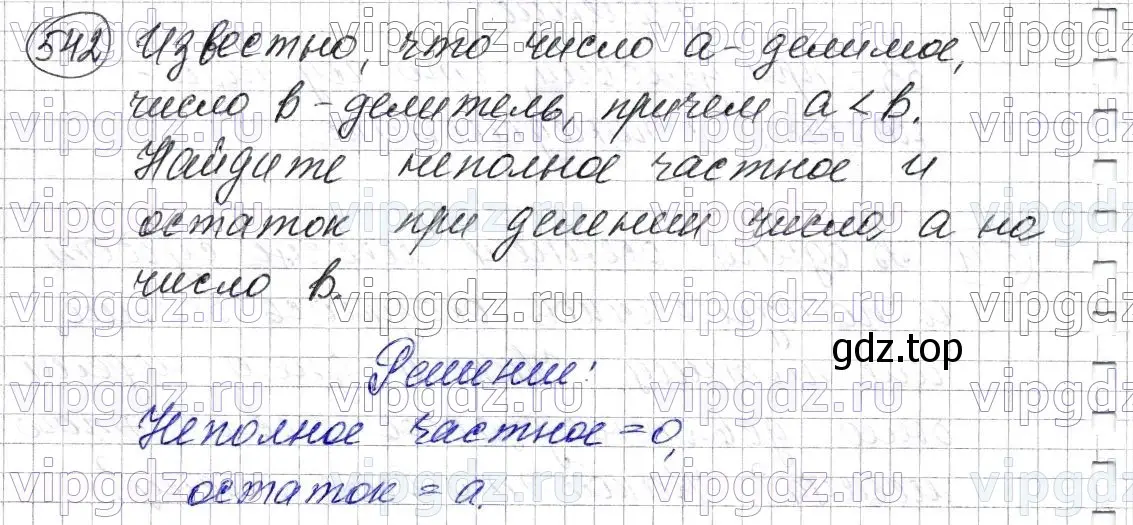 542 Известно, что число a - делимое,
число b - делитель, причем a < b.
Найдите неполное частное и
остаток при делении числа a на
число b.
gdz.top
Решение:
Неполное частное = 0,
остаток = a.
vipgdz.ru